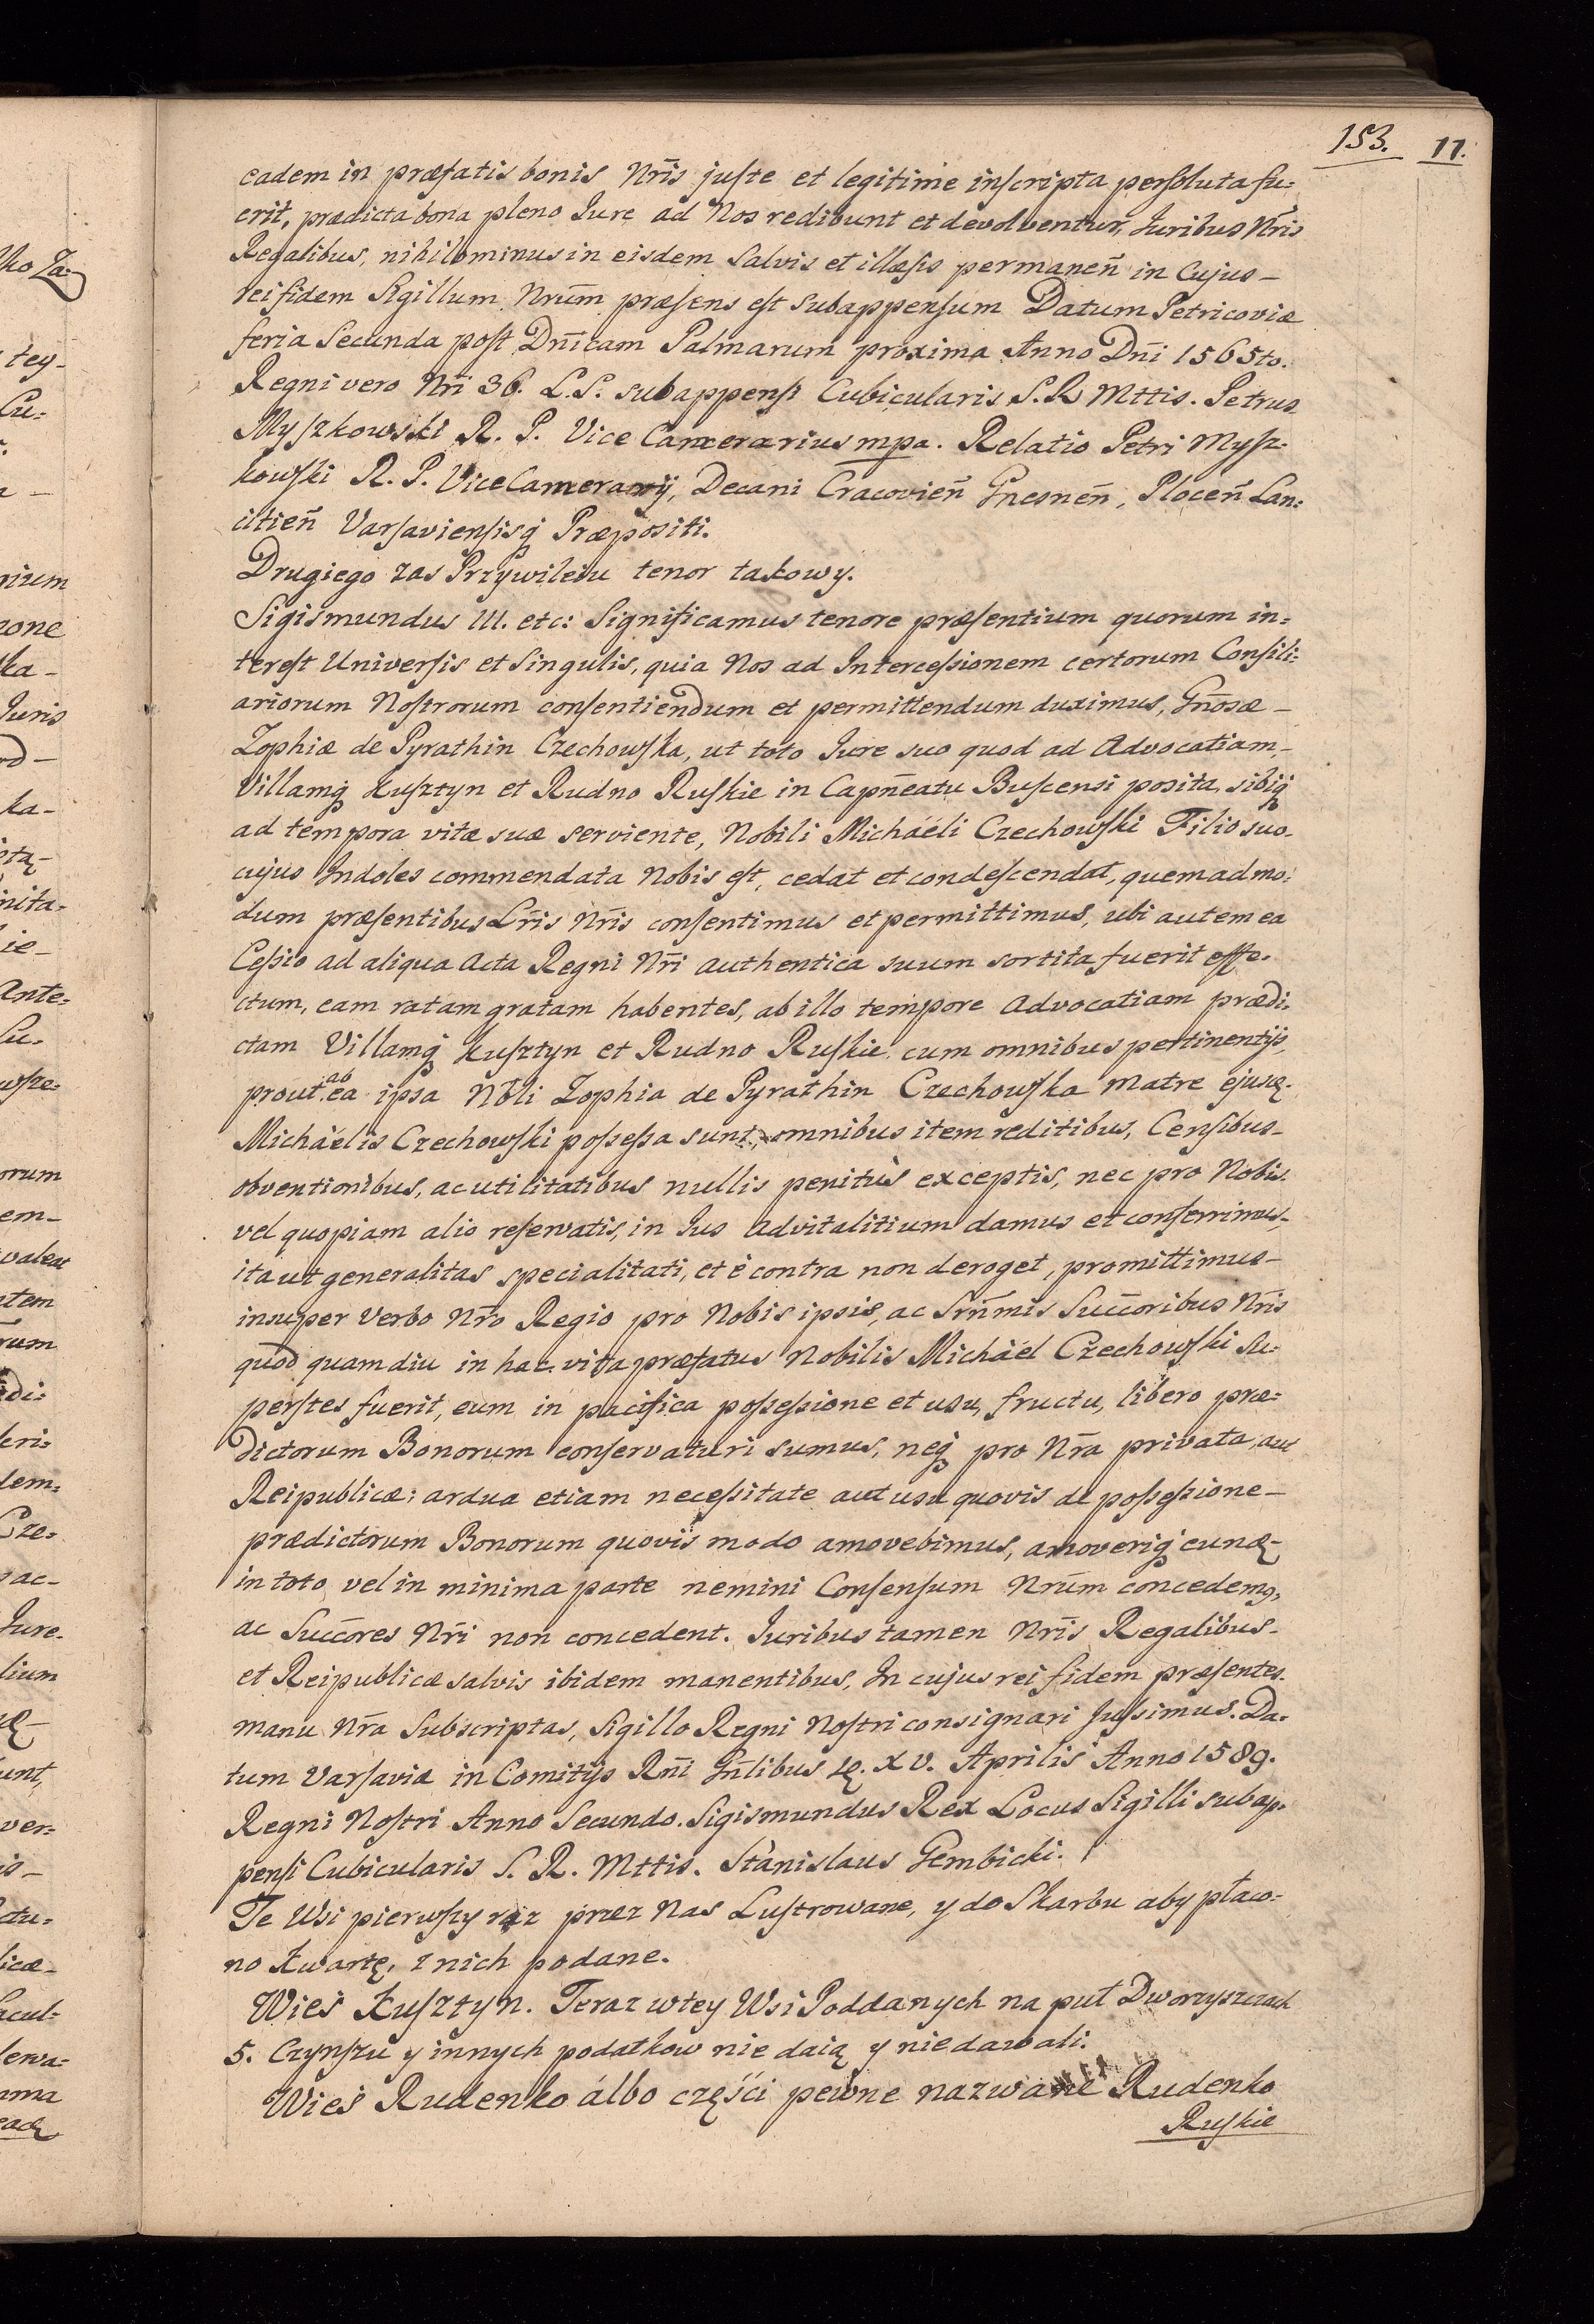 153. 11.
eadem in præfatis bonis Nr̄is juste et legitime inscripta persoluta fu:
erit, prædicta bona pleno Jure ad Nos redibunt et devolventur, Juribus Nr̄is
Regalibus, nihilominus in eisdem Salvis et illæsis permaneñ in Cujus-
rei fidem Sigillum Nrūm præsens est subappensum Datum Petricoviæ
feria Secunda post Dn̄icam Palmarum proxima Anno Dn̄i 1565to.
Regni vero Nr̄i 36. L.S. subappensi Cubicularis S.R Mttis. Petrus
Myszkowski R. P. Vice Camerarius mpa. Relatio Petri Mysz-
kowski R. P. Vice Camerarij, Decani Cracovieñ Gnesneñ, Ploceñ Lan:
citieñ Varsaviensisq̃ Præpositi.
Drugiego zas Przywileiu tenor takowy.
Sigismundus III. etc: Significamus tenore præsentium quorum in=
terest Universis et Singulis, quia Nos ad Intercessionem certorum Consili:
ariorum Nostrorum consentiendum et permittendum duximus, Gn̄osæ-
Zophiæ de Pyrathin Czechowska, ut toto Jure suo quod ad Advocatiam,-
Villamq̃ Kusztyn et Rudno Ruskie in Capn̄eatu Buscensi posita, sibiq̃
ad tempora vitæ suæ serviente, Nobili Michaéli Czechowski Filio suo-
cujus Indoles commendata Nobis est, cedat et condescendat, quemadmo:
dum præsentibus Lr̄is Nr̄is consentimus et permittimus, ubi autem ea
Cessio ad aliqua Acta Regni Nr̄i authentica suum sortita fuerit effe-
ctum, eam ratam gratam habentes, ab illo tempore Advocatiam prædi-
ctam Villamq̃ Kusztyn et Rudno Ruskie cum omnibus pertinentijs,
prout ab ea ipsa Nobli Zophia de Pyrathin Czechowska Matre ejusq.
Michäelis Czechowski possessa sunt, omnibus item reditibus, Censibus-
obventionibus, ac utilitatibus nullis penitùs exceptis, nec pro Nobis.
vel quopiam alio reservatis, in Jus advitalitium damus et conferrimus,-
ita ut generalitas specialitati, et è contra non deroget, promittimus-
insuper Verbo Nr̄o Regio pro Nobis ipsis, ac Srn̄mis Succ̄oribus Nr̄is
quod quamdiu in hac vita præfatus Nobilis Michäél Czechowski Su:
perstes fuerit, eum in pacifica possessione et usu, fructu, libero præ:
dictorum Bonorum conservaturi sumus, neq̃ pro Nr̄a privata, aut
Reipublicæ; ardua etiam necessitate aut usu quovis de possessione-
prædictorum Bonorum quovis modo amovebimus, amoveriq̃ eundę-
in toto vel in minima parte nemini Consensum Nrūm concedemꝯ,
ac Succ̄ores Nr̄i non concedent. Juribus tamen Nr̄is Regalibus-
et Reipublicæ salvis ibidem manentibus, In cujus rei fidem præsentes.
manu Nr̄a Subscriptas, Sigillo Regni Nostri consignari Jussimus. Da=
tum Varsaviæ in Comitijs Rn̄i Gn̄libus d. XV. Aprilis Anno 1589.
Regni Nostri Anno Secundo. Sigismundus Rex Locus Sigilli subap-
pensi Cubicularis S. R. Mttis. Stanislaus Gembicki.
Te Wsi pierwszy raz przez Nas Lustrowane, y do Skarbu aby płaco-
no Kwartę, z nich podane.
Wieś Kusztyn. Teraz wtey Wsi Poddanych na puł Dworzyszczach
5. Czynszu y innych podatkow nie daią y niedawali.
Wieś Rudenko álbo częśći pewne nazwane Rudenko
Ruskie